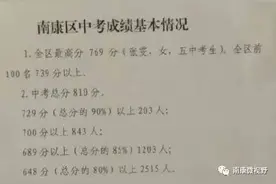 南康区中考成绩基本情况
1.全区最高分 769 分（张雯，女，五中考生），全区前
100 名 739 分以上。
2.中考总分 810 分。
729 分（总分的 90%）以上 203 人；
700 分以上 843 人；
689 分以上（总分的 85%）1203 人；
648 分（总分的 80%）以上 2515 人。
南康微视野